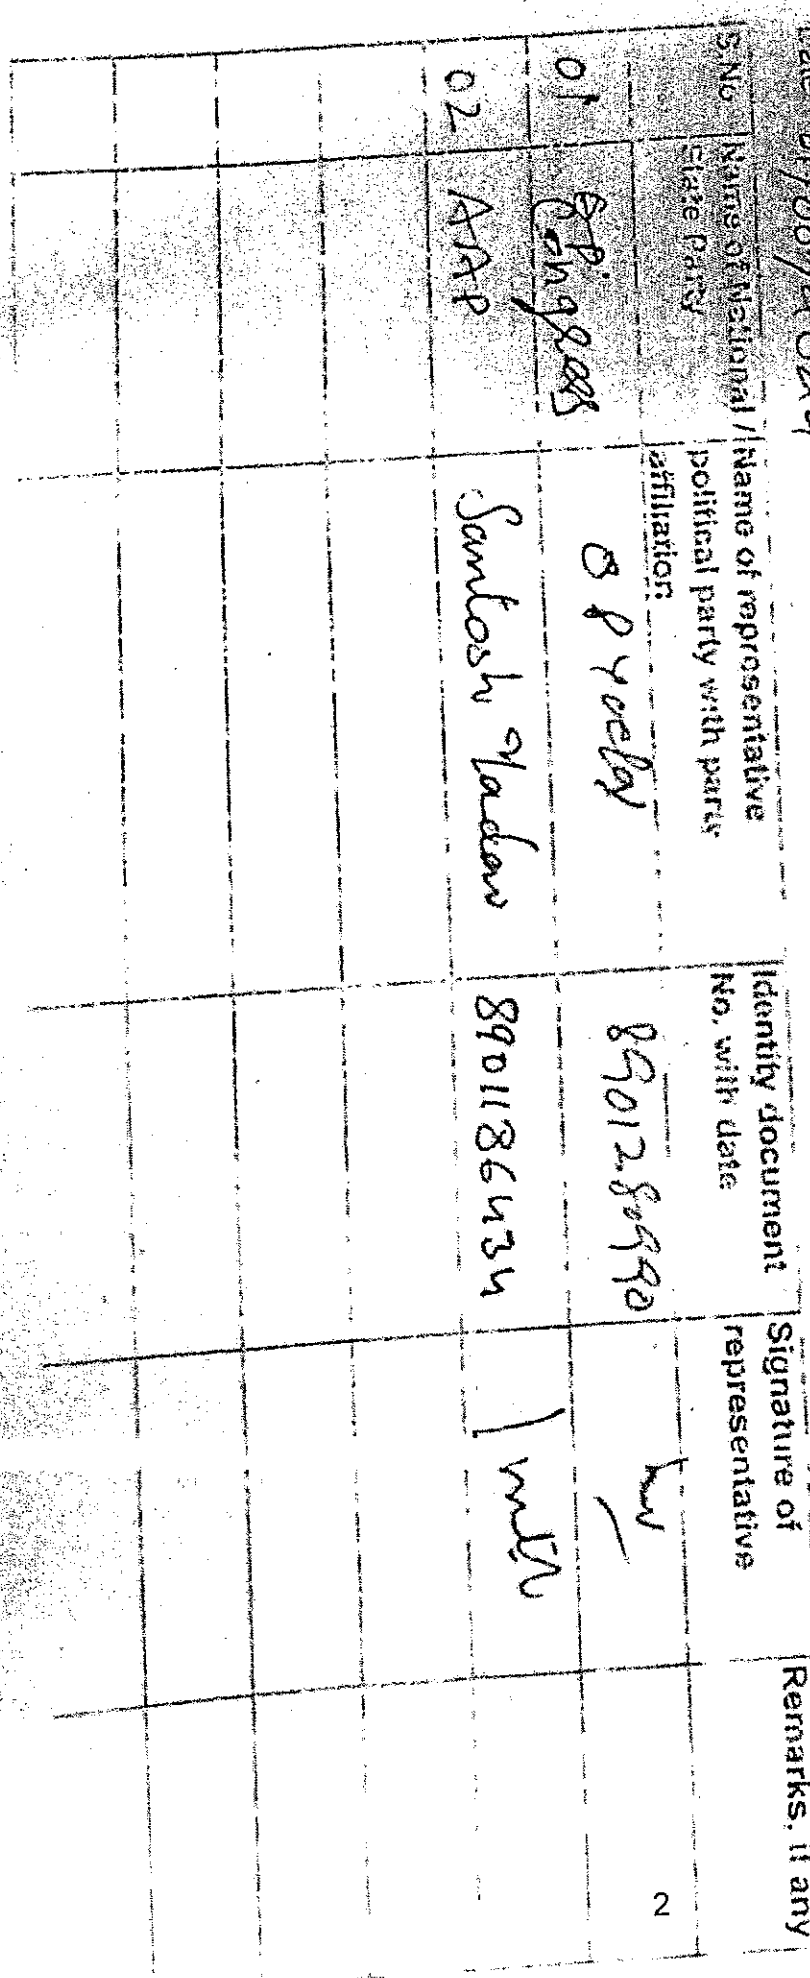 S.No
Name of National /
State Party
Name of representative
political party with party
affiliation
Identity document
No. with date
Signature of
representative
Remarks, if any
01
Congress
02
AAP
Santosh Yadav
8901186434
2